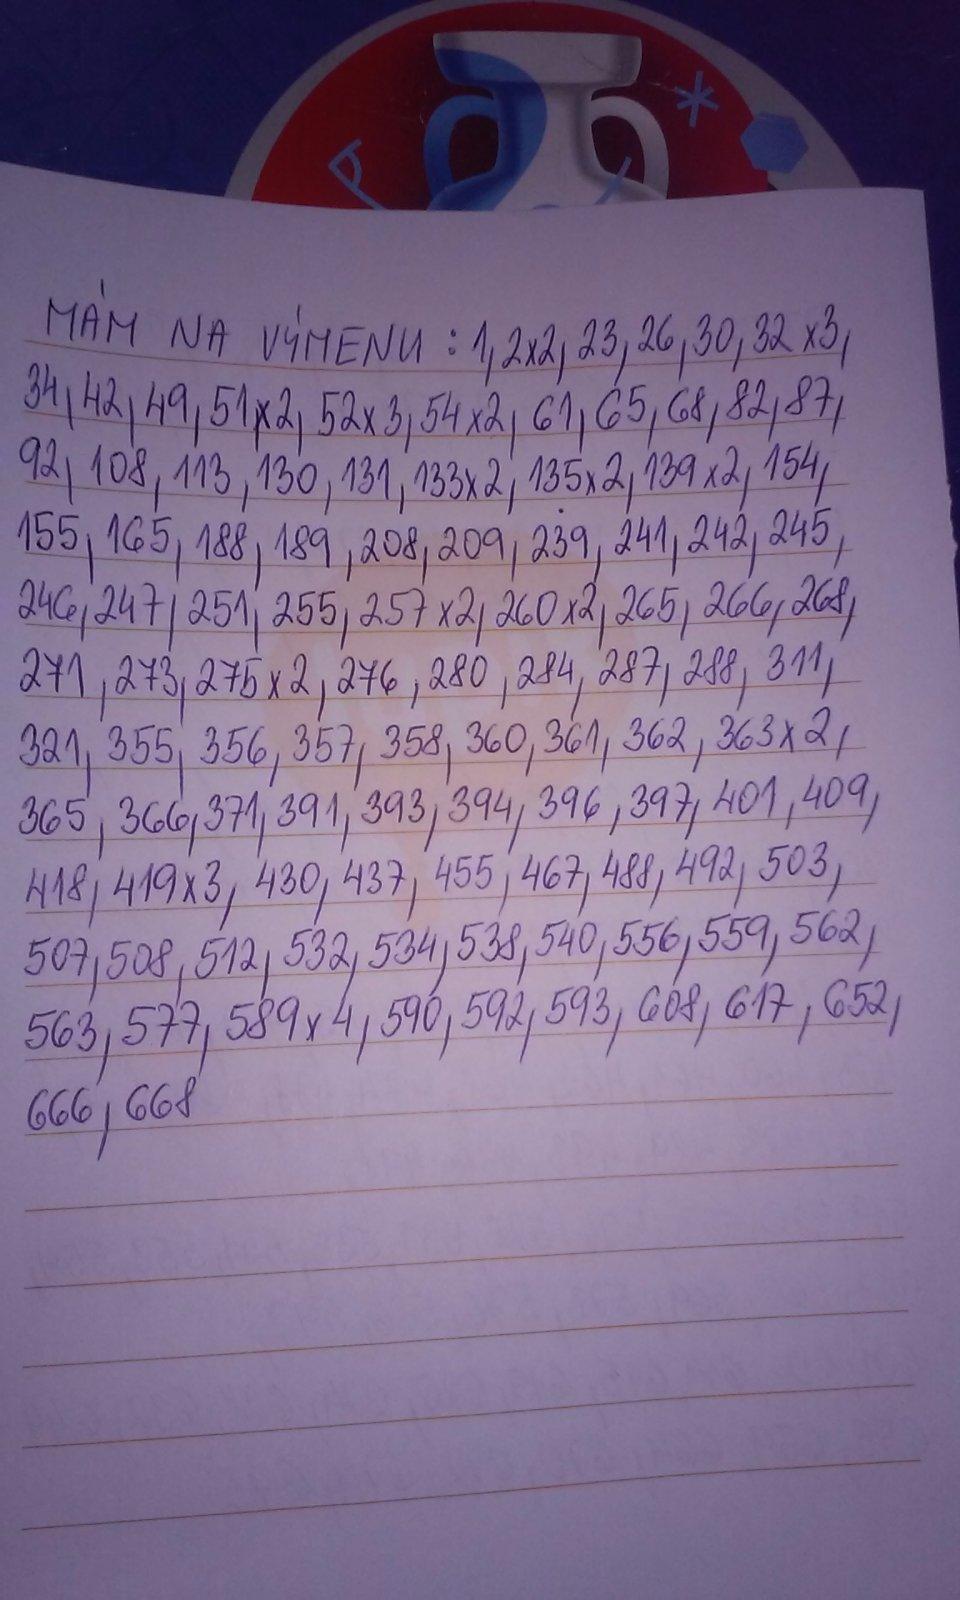 MÁM NA VÝMENU : 1, 2x2, 23, 26, 30, 32 x3,
34, 42, 49, 51x2, 52x3, 54x2, 61, 65, 68, 82, 87,
92, 108, 113, 130, 131, 133x2, 135x2, 139x2, 154,
155, 165, 188, 189, 208, 209, 239, 241, 242, 245,
246, 247, 251, 255, 257x2, 260x2, 265, 266, 268,
271, 273, 275x2, 276, 280, 284, 287, 288, 311,
321, 355, 356, 357, 358, 360, 361, 362, 363x2,
365, 366, 371, 391, 393, 394, 396, 397, 401, 409,
418, 419x3, 430, 437, 455, 467, 488, 492, 503,
507, 508, 512, 532, 534, 538, 540, 556, 559, 562,
563, 577, 589x4, 590, 592, 593, 608, 617, 652,
666, 668